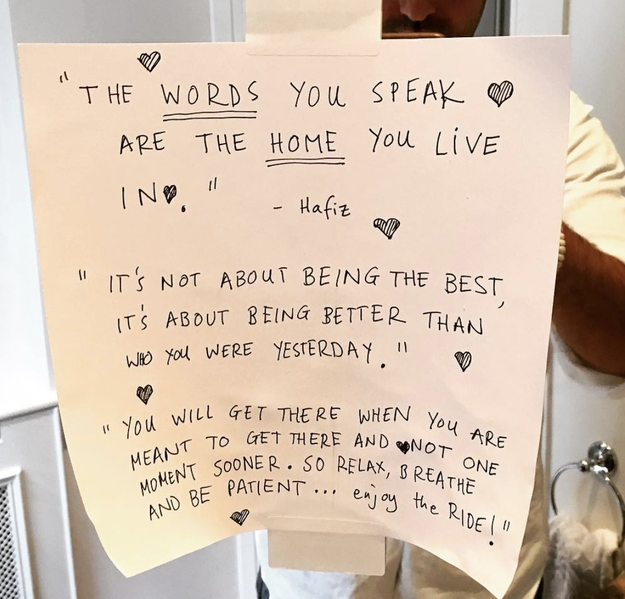 "THE WORDS YOU SPEAK
ARE THE HOME YOU LIVE
IN."
- Hafiz
"IT'S NOT ABOUT BEING THE BEST,
IT'S ABOUT BEING BETTER THAN
WHO YOU WERE YESTERDAY."
"YOU WILL GET THERE WHEN YOU ARE
MEANT TO GET THERE AND NOT ONE
MOMENT SOONER. SO RELAX, BREATHE
AND BE PATIENT... enjoy the RIDE!"